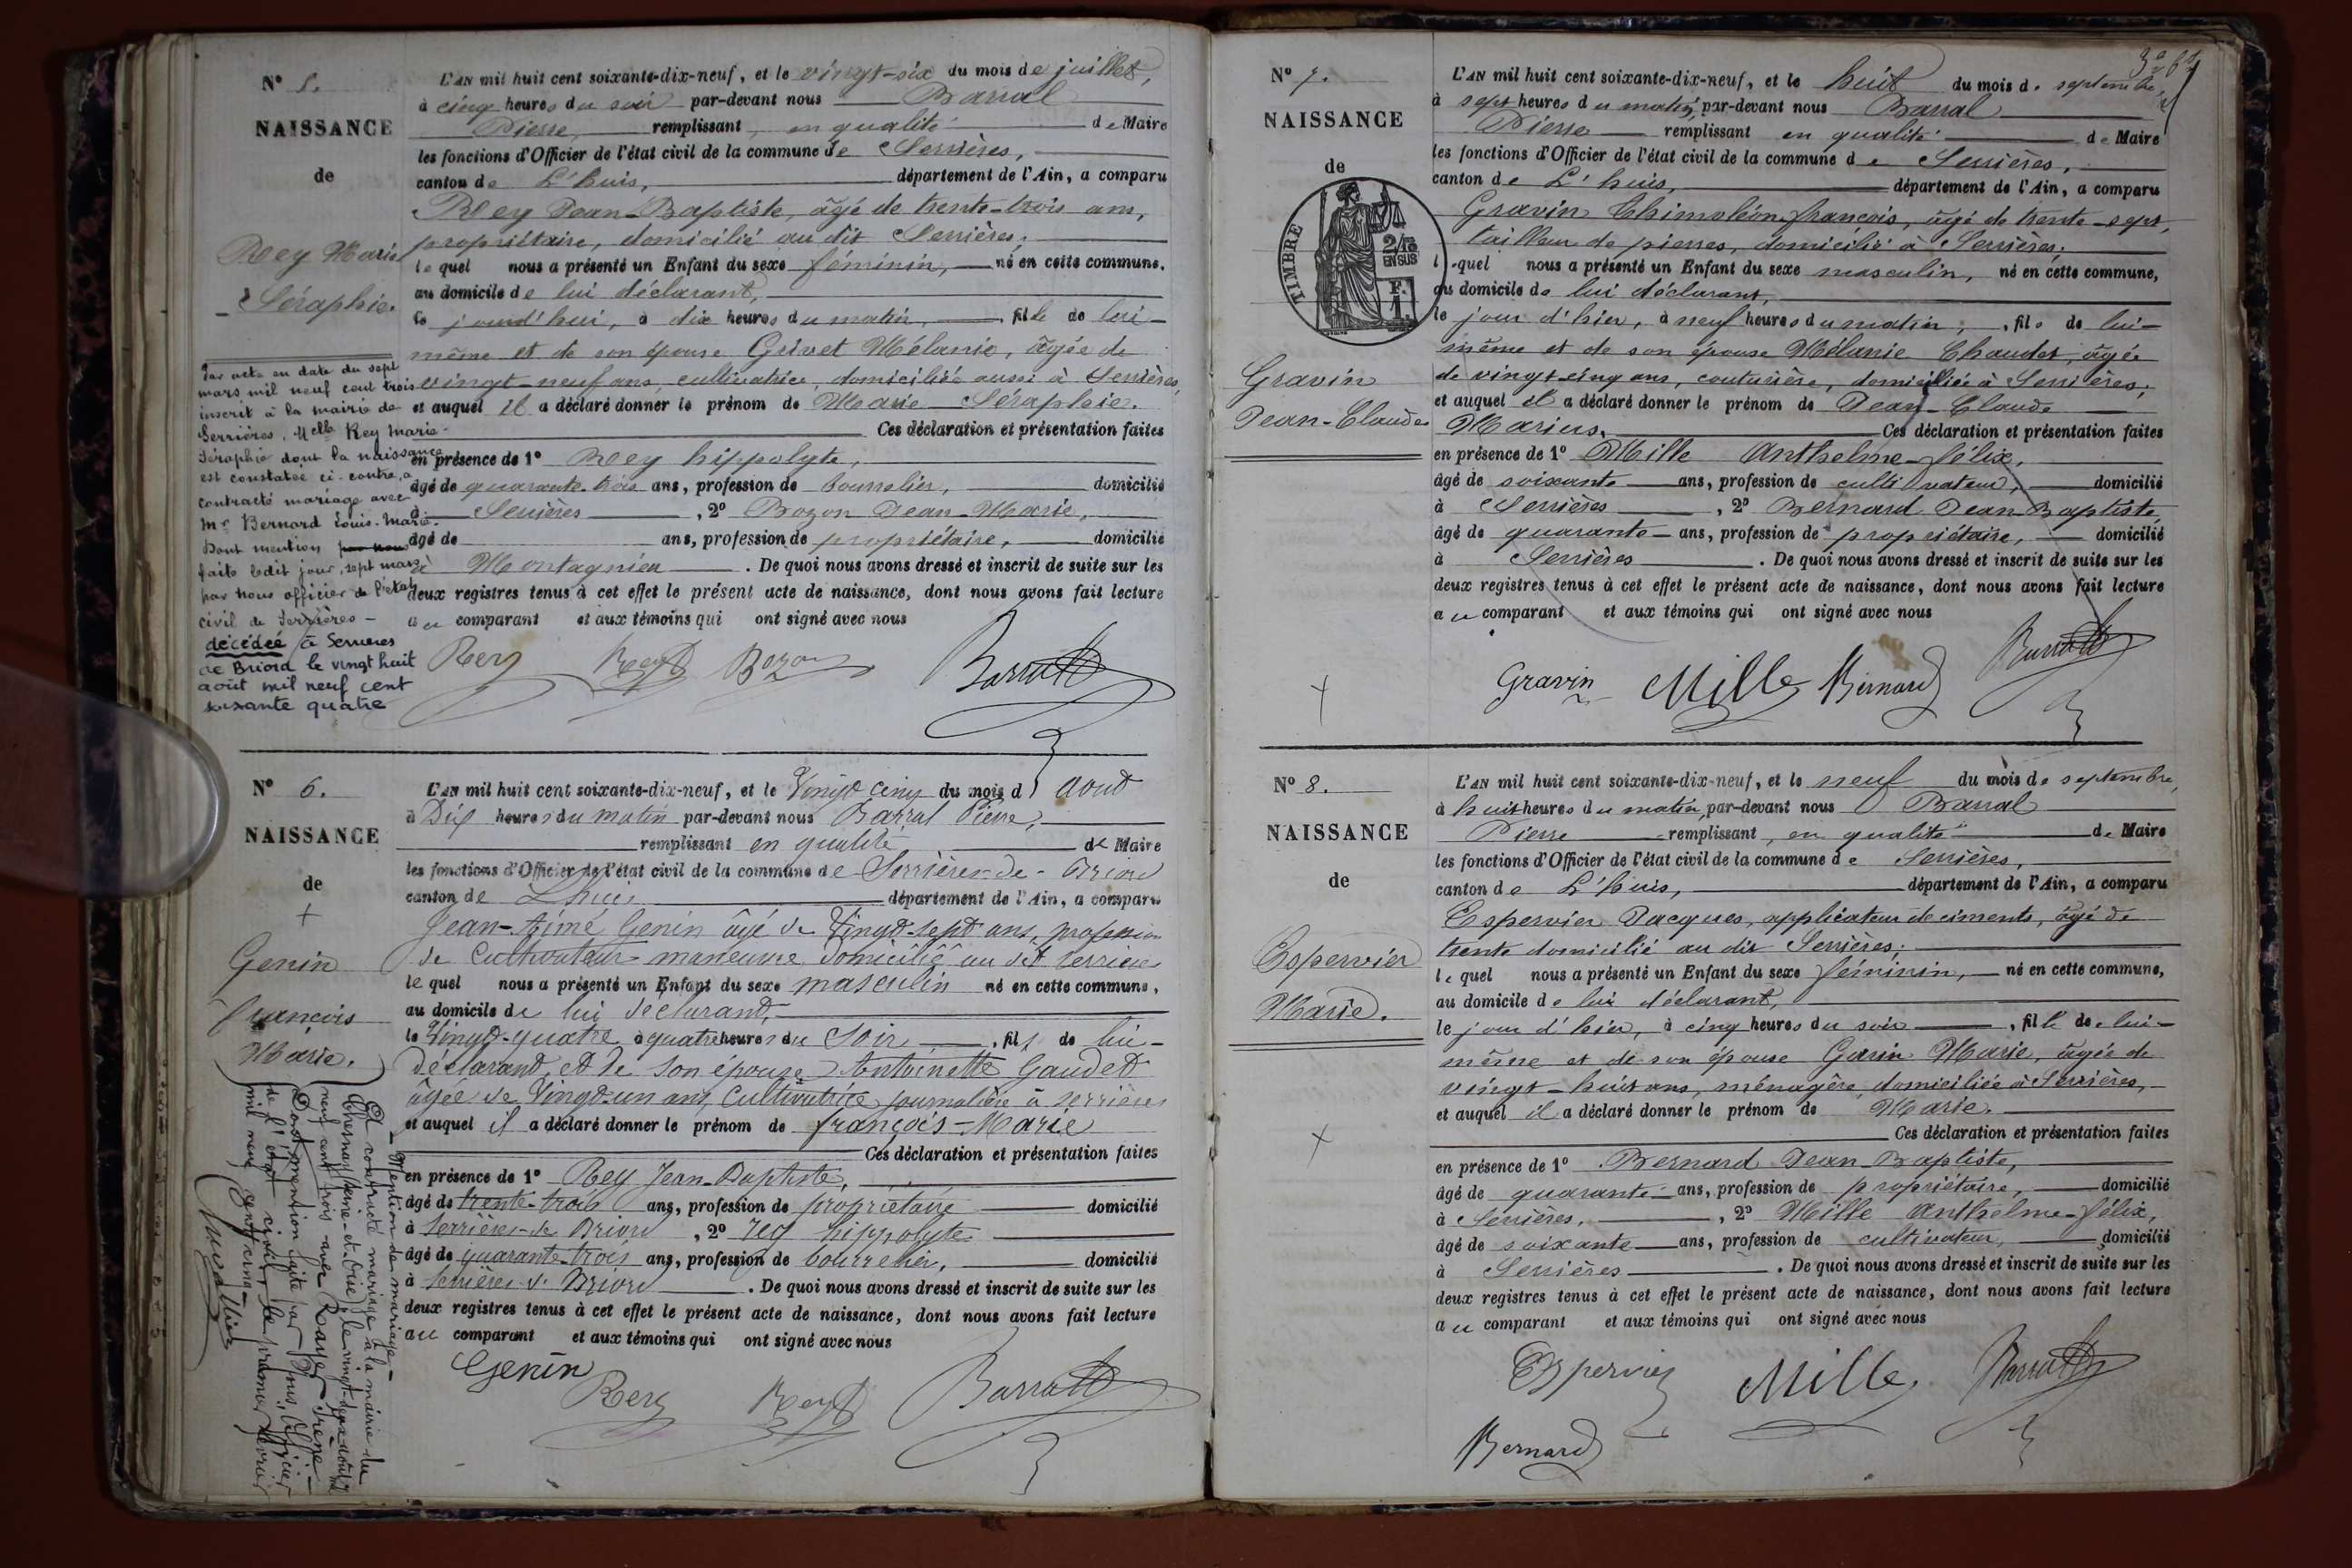 N° 5.
NAISSANCE
de
Rey Marie
Séraphie.
Par acte en date du sept
mars mil neuf cent trois
inscrit à la mairie de
Serrières, Melle Rey Marie-
Séraphie dont la naissance
est constatée ci-contre, a
contracté mariage avec
Mr Bernard Louis-Marie.
Dont mention par nous
faite ledit jour, sept mars
par nous officier de l'état
civil de Serrières -
décédée à Serrières
de Briord le vingt huit
août mil neuf cent
soixante quatre
L'AN mil huit cent soixante-dix-neuf, et le vingt-six du mois de juillet,
à cinq heures du soir par-devant nous Barral
Pierre, remplissant, en qualité de Maire
les fonctions d'Officier de l'état civil de la commune de Serrières,
canton de L'huis, département de l'Ain, a comparu
Rey Jean-Baptiste, âgé de trente-trois ans,
propriétaire, domicilié au dit Serrières;
lequel nous a présenté un Enfant du sexe féminin, né en cette commune,
au domicile de lui déclarant,
le jourd'hui, à dix heures du matin, , fille de lui-
même et de son épouse Grivet Mélanie, âgée de
vingt-neuf ans, cultivatrice, domiciliée aussi à Serrières,
et auquel il a déclaré donner le prénom de Marie-Séraphie.
Ces déclaration et présentation faites
en présence de 1° Rey hippolyte,
âgé de quarante-trois ans, profession de bourrelier, domicilié
à Serrières , 2° Bozon Jean-Marie,
âgé de ans, profession de propriétaire, domicilié
à Montagnieu . De quoi nous avons dressé et inscrit de suite sur les
deux registres tenus à cet effet le présent acte de naissance, dont nous avons fait lecture
au comparant et aux témoins qui ont signé avec nous
Rey Rey Bozon Barral
N° 6.
NAISSANCE
de
+
Genin
françois
Marie.
Mention de mariage -
A contracté mariage à la mairie du
neuf cent trois avec Rayer Irène -
Dont mention faite par nous, Officier
de l'état civil, le premier février
mil neuf cent
L'AN mil huit cent soixante-dix-neuf, et le Vingt cinq du mois d' aout
à Dix heures du matin par-devant nous Barral Pierre,
remplissant en qualité de Maire
les fonctions d'Officier de l'état civil de la commune de Serrières-de-Briord
canton de Lhuis département de l'Ain, a comparu
Jean-Aimé Genin âgé de Vingt-sept ans, profession
de Cultivateur maneuvre domicilié au dit serrieres
lequel nous a présenté un Enfant du sexe masculin né en cette commune,
au domicile de lui déclarand,
le Vingt-quatre à quatre heures du soir , fils de lui-
déclarand, et de son épouse Antoinette Gaudet
âgée de Vingt-un ans, Cultivatrice journalière à serrières
et auquel il a déclaré donner le prénom de françois-Marie
Ces déclaration et présentation faites
en présence de 1° Rey Jean-Baptiste,
âgé de trente-trois ans, profession de propriétaire domicilié
à Serrières-de Briord , 2° rey hippolyte
âgé de quarante-trois ans, profession de bourrelier, domicilié
à serrières de Briord . De quoi nous avons dressé et inscrit de suite sur les
deux registres tenus à cet effet le présent acte de naissance, dont nous avons fait lecture
au comparant et aux témoins qui ont signé avec nous
Genin Rey Rey Barral
N° 7.
NAISSANCE
de
TIMBRE
2/10
EN SUS
F.
1.
Gravin
Jean-Claude
+
L'AN mil huit cent soixante-dix-neuf, et le huit du mois de septembre,
à sept heures du matin, par-devant nous Barral
Pierre remplissant en qualité de Maire
les fonctions d'Officier de l'état civil de la commune de Serrières,
canton de L'huis, département de l'Ain, a comparu
Gravin Thimoléon françois, âgé de trente-sept,
tailleur de pierres, domicilié à Serrières;
lequel nous a présenté un Enfant du sexe masculin, né en cette commune,
au domicile de lui déclarant,
le jour d'hier, à neuf heures du matin, , fils de lui-
même et de son épouse Mélanie Chaudet, âgée
de vingt-cinq ans, couturière, domiciliée à Serrières;
et auquel il a déclaré donner le prénom de Jean-Claude
Marius. Ces déclaration et présentation faites
en présence de 1° Mille Anthelme-félix,
âgé de soixante ans, profession de cultivateur, domicilié
à Serrières , 2° Bernard Jean-Baptiste
âgé de quarante ans, profession de propriétaire, domicilié
à Serrières . De quoi nous avons dressé et inscrit de suite sur les
deux registres tenus à cet effet le présent acte de naissance, dont nous avons fait lecture
au comparant et aux témoins qui ont signé avec nous
Gravin Mille Bernard Barral
N° 8.
NAISSANCE
de
Espervier
Marie.
+
L'AN mil huit cent soixante-dix-neuf, et le neuf du mois de septembre,
à huit heures du matin, par-devant nous Barral
Pierre remplissant, en qualité de Maire
les fonctions d'Officier de l'état civil de la commune de Serrières,
canton de L'huis, département de l'Ain, a comparu
Espervier Jacques, applicateur de ciments, âgé de
trente domicilié au dit Serrières;
lequel nous a présenté un Enfant du sexe féminin, né en cette commune,
au domicile de lui déclarant,
le jour d'hier, à cinq heures du soir , fille de lui-
même et de son épouse Garin Marie, âgée de
vingt-huit ans, ménagère, domiciliée à Serrières,
et auquel il a déclaré donner le prénom de Marie.
Ces déclaration et présentation faites
en présence de 1° Bernard Jean-Baptiste,
âgé de quarante ans, profession de propriétaire, domicilié
à Serrières, , 2° Mille Anthelme-félix,
âgé de soixante ans, profession de cultivateur, domicilié
à Serrières . De quoi nous avons dressé et inscrit de suite sur les
deux registres tenus à cet effet le présent acte de naissance, dont nous avons fait lecture
au comparant et aux témoins qui ont signé avec nous
Espervier Mille Barral
Bernard